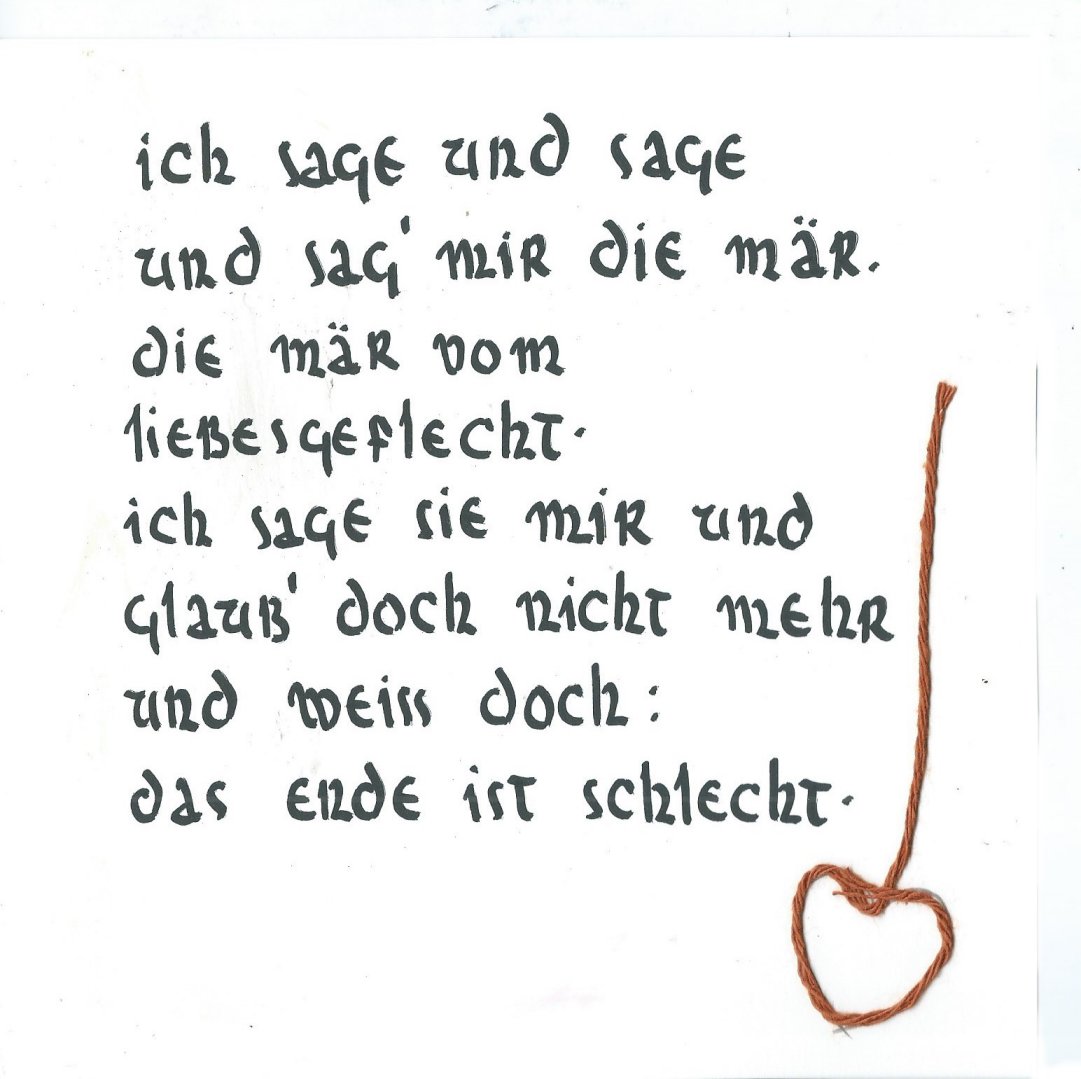 ich sage und sage
und sag' mir die mär.
die mär vom
liebesgeflecht.
ich sage sie mir und
glaub' doch nicht mehr
und weiss doch:
das ende ist schlecht.